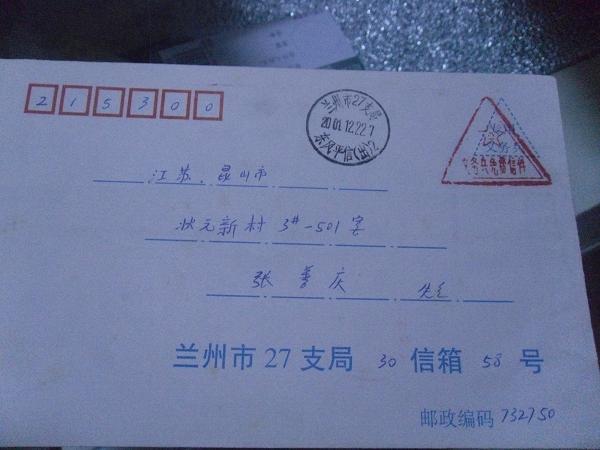 215300
兰州市27支局
2001.12.22.7
东风平信(出)2
义务兵免费信件
江苏.昆山市
状元新村 3#-501室
张 庆 先生
兰州市27支局 30 信箱 58 号
邮政编码 732750